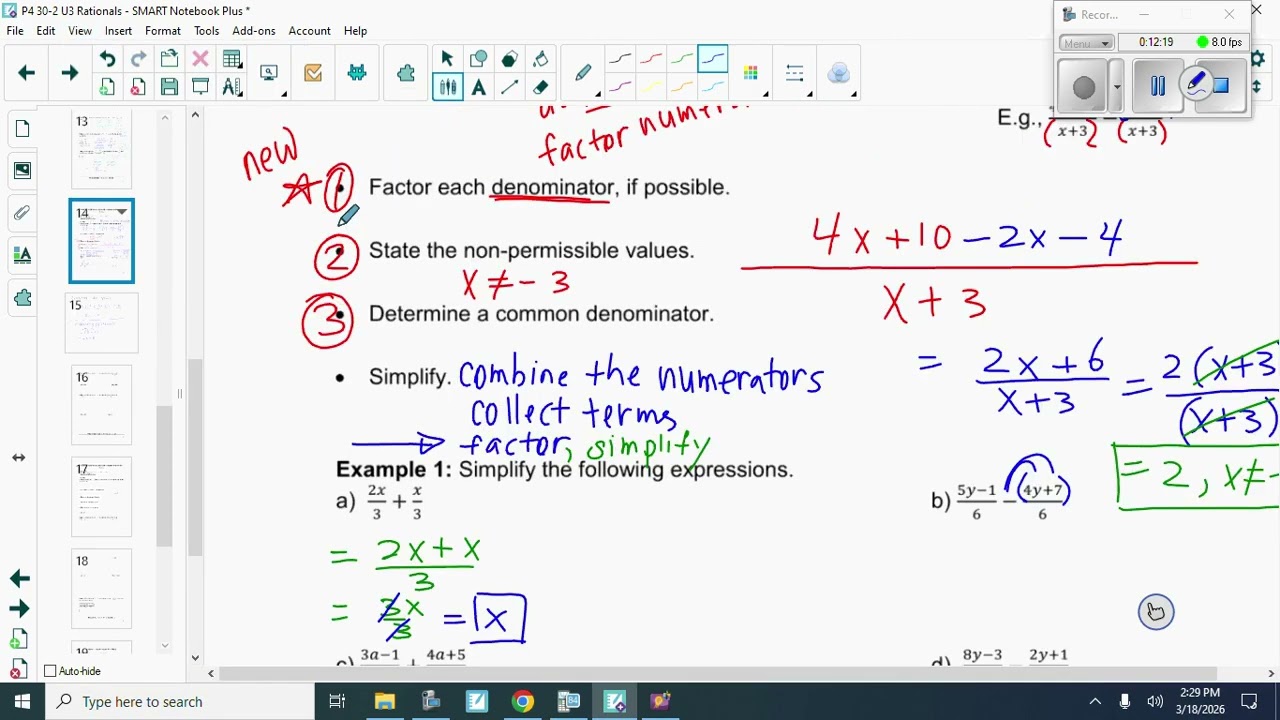 P4 30-2 U3 Rationals - SMART Notebook Plus *
File Edit View Insert Format Tools Add-ons Account Help
Recor...
Menu 0:12:19 8.0 fps
13
14
15
16
17
18
Auto-hide
factor
E.g.,
(x+3) (x+3)
new
① Factor each denominator, if possible.
② State the non-permissible values.
x ≠ - 3
③ Determine a common denominator.
4x+10 -2x-4
x+3
= 2x+6 / x+3 = 2(x+3 / (x+3)
= 2, x≠-
• Simplify. combine the numerators
collect terms
→ factor, simplify
Example 1: Simplify the following expressions.
a) 2x/3 + x/3
= 2x+x / 3
= 3x/3 = x
b) 5y−1/6 − (4y+7)/6
c) 3a−1 + 4a+5
d) 8y−3 − 2y+1
Type here to search
2:29 PM
3/18/2026